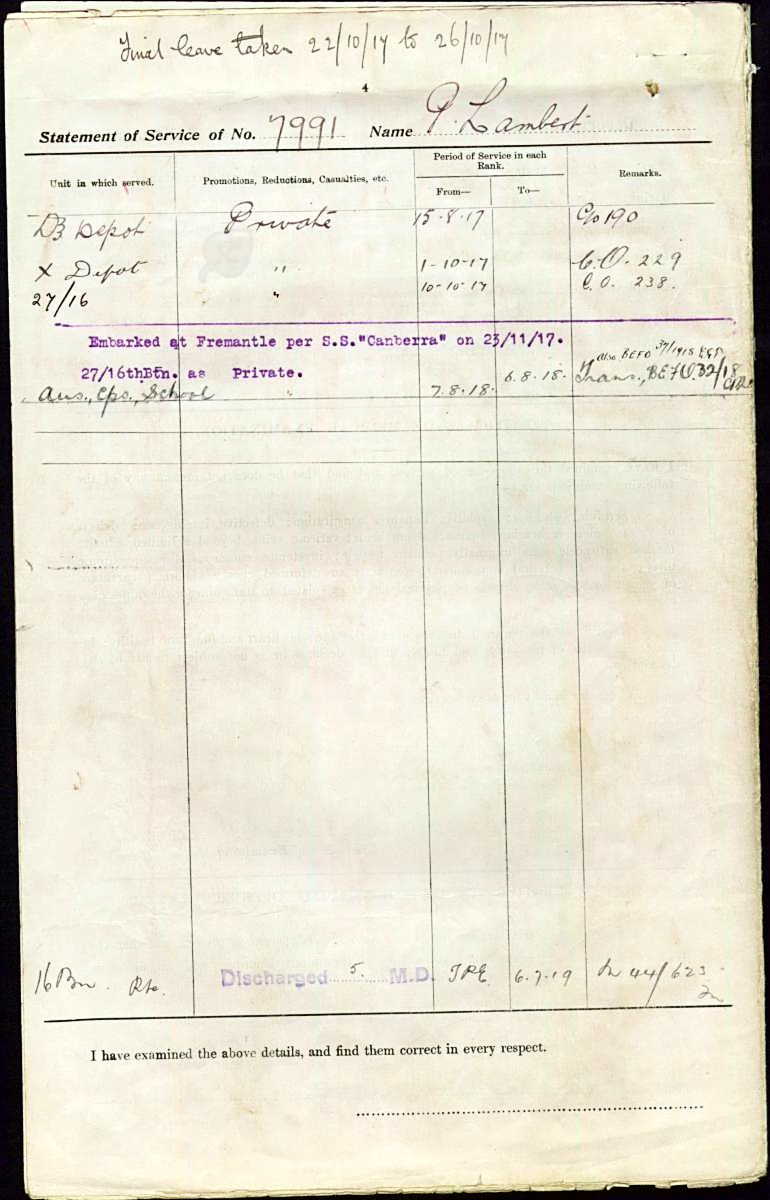 Final leave taken 22/10/17 to 26/10/17
4
Statement of Service of No. 7991 Name P. Lambert
Unit in which served. Promotions, Reductions, Casualties, etc. Period of Service in each Rank. From— To— Remarks.
Depot Private 15.8.17 C/o 190
X Depot " 1-10-17 C.O. 229
27/16 " 10-10-17 C.O. 238.
Embarked at Fremantle per S.S."Canberra" on 23/11/17.
also BEFO 37/1918
27/16thBtn. as Private. 6.8.18. Trans., BEFO. 32/18
Aus., Cps., School " 7.8.18.
16 Bn. Pte. Discharged 5 M.D. TPE 6.7.19 44/623
I have examined the above details, and find them correct in every respect.